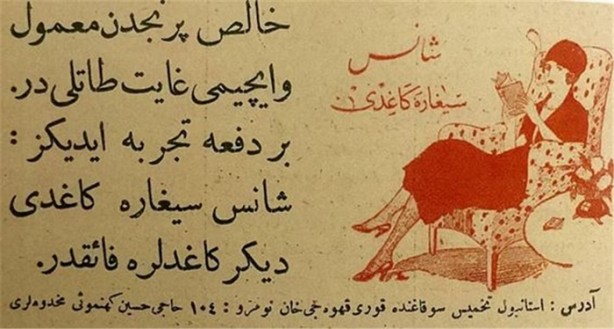 خالص پرنجدن معمول
وایچیمی غایت طاتلی در.
بر دفعه تجربه ایدیکز :
شانس سیغاره کاغدی
دیکر کاغدلره فائقدر.
شانس
سیغاره کاغدی
آدرس : استانبول تخمیس سوقاغنده قوری قهوه جی خان نومرو : ١٠٤ حاجی حسین کهنموئی مخدوملری